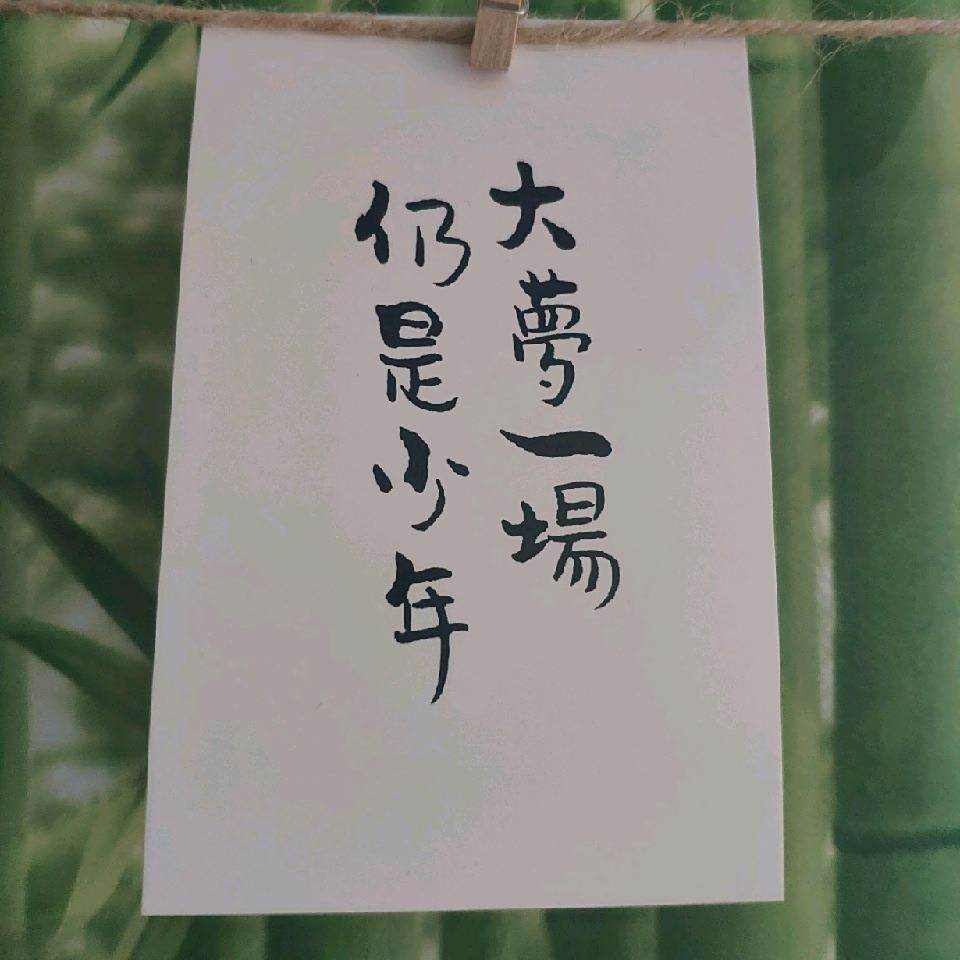 大夢一場
仍是少年